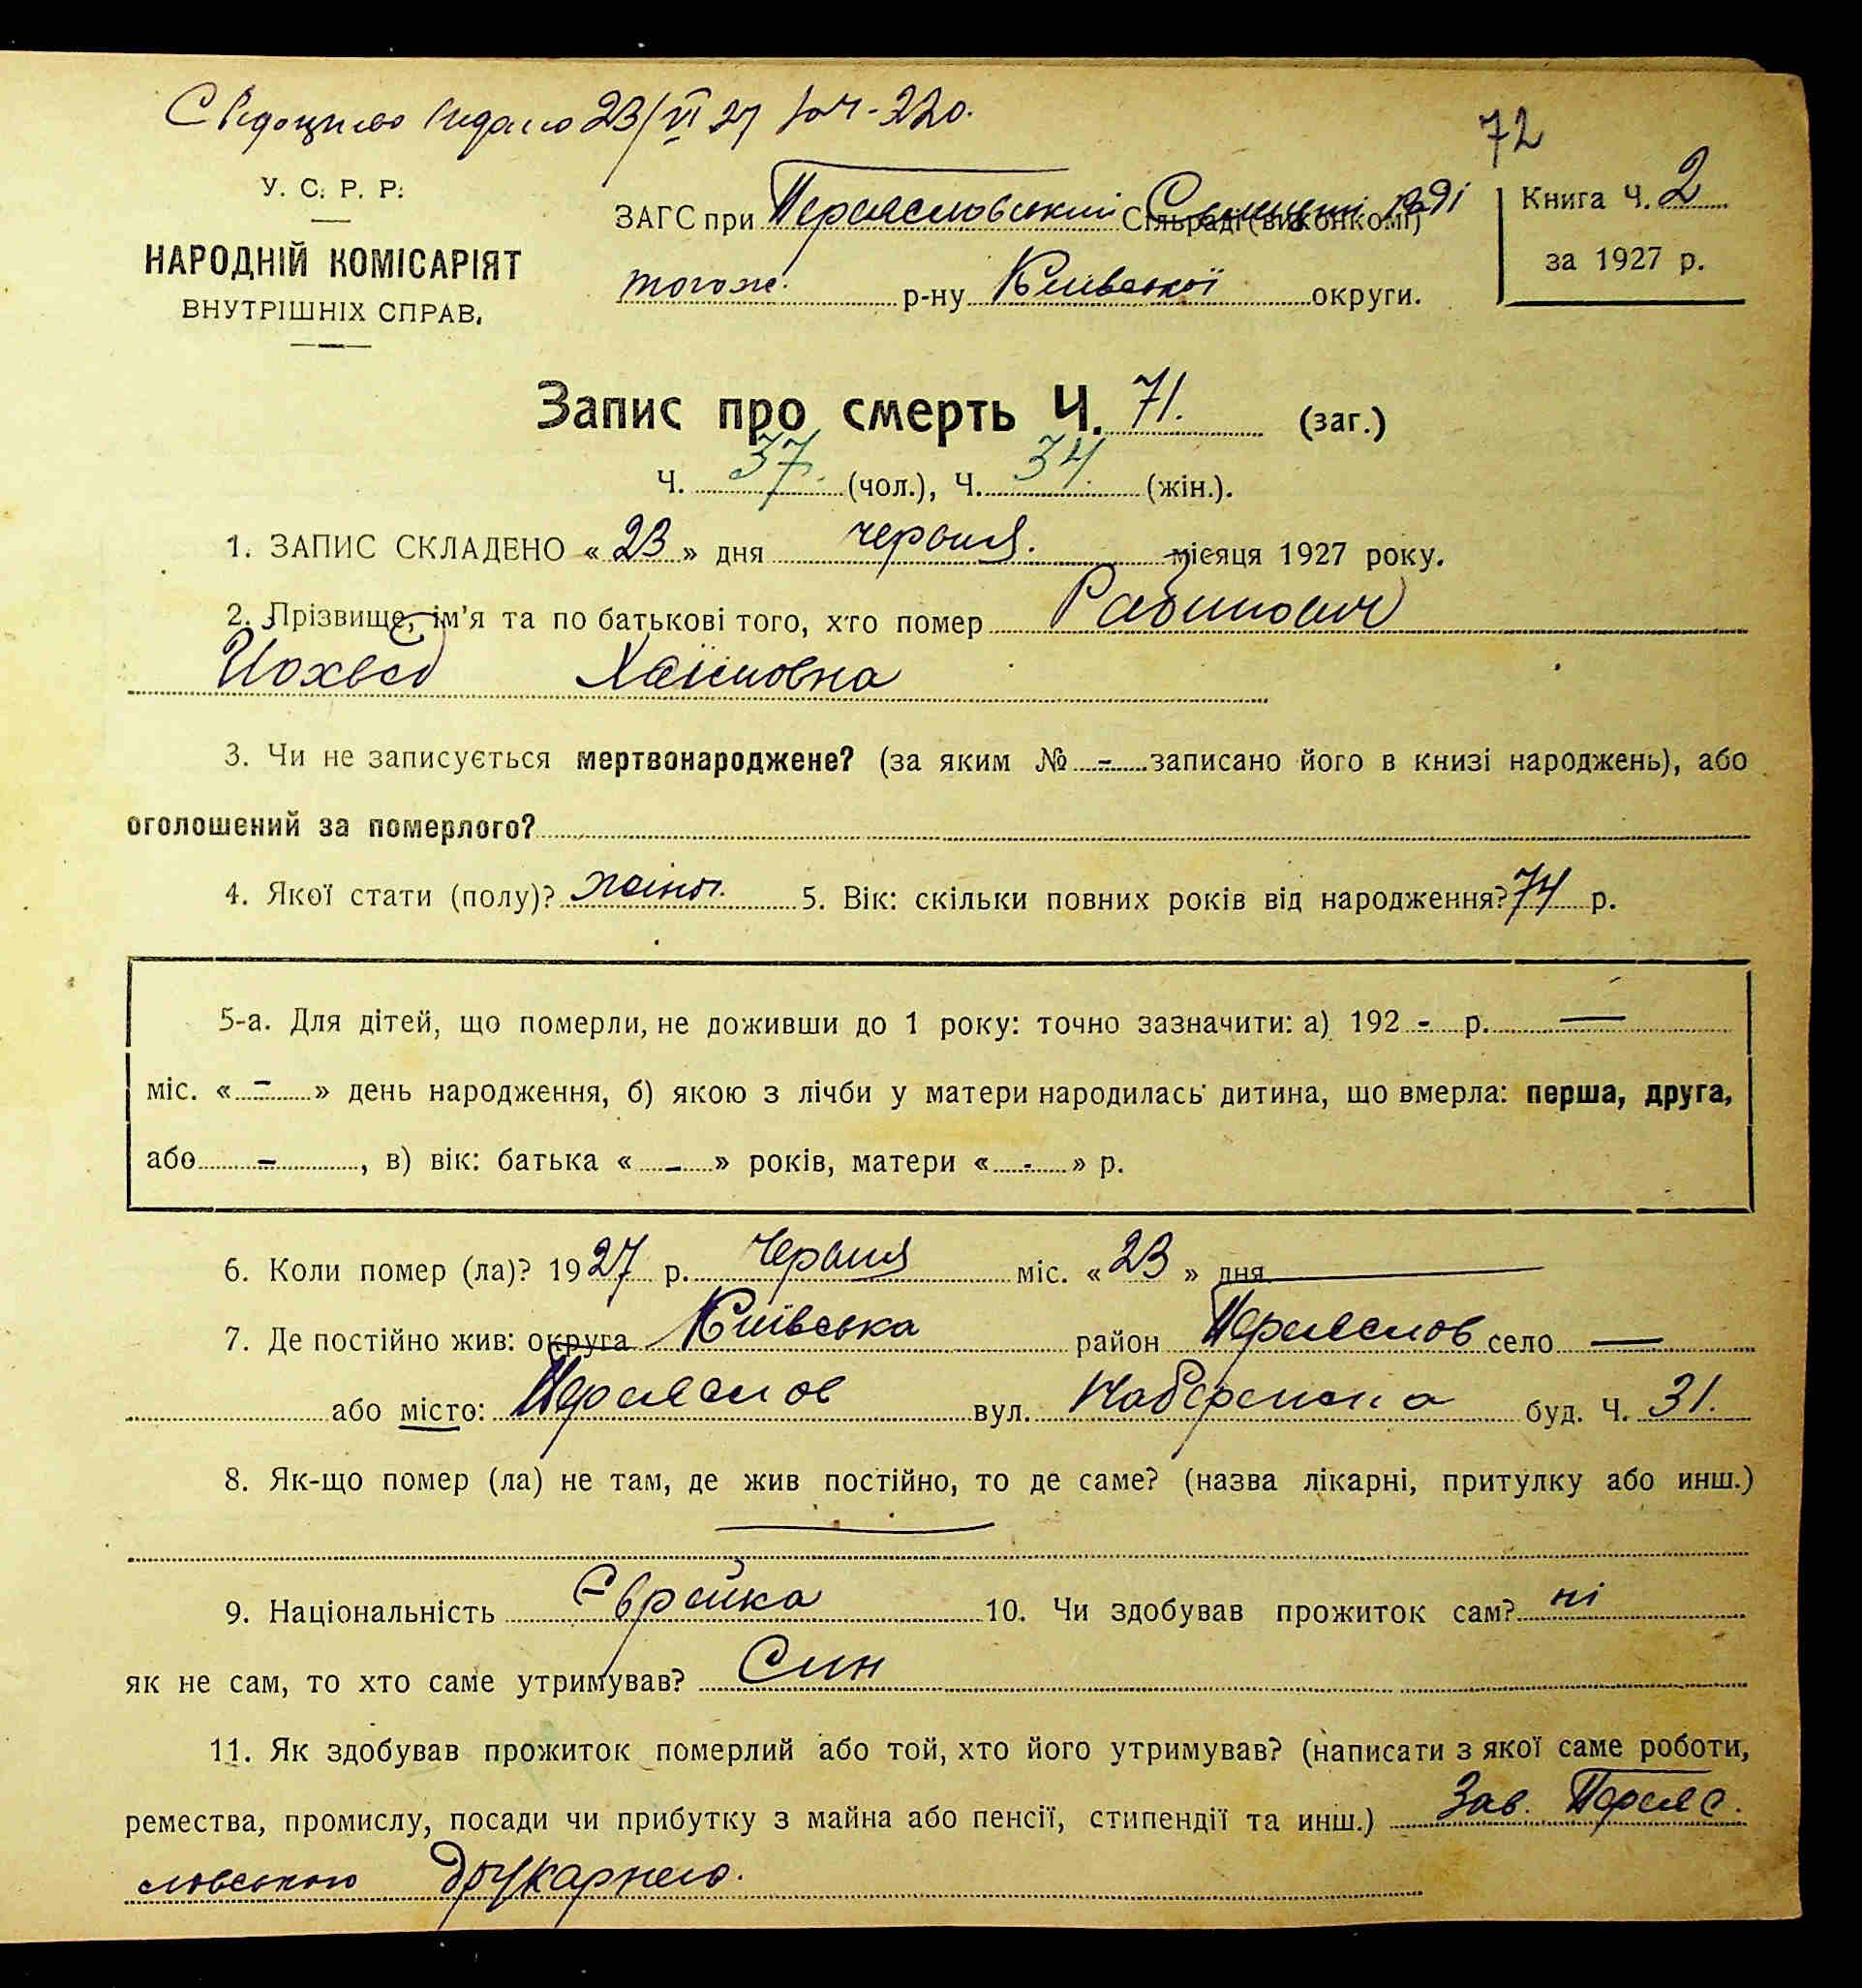 Свідоцтво видано 23/VI 27 за ч - 220.
72
У. С. Р. Р.
НАРОДНІЙ КОМІСАРІЯТ
ВНУТРІШНІХ СПРАВ.
ЗАГС при Переяславський Сільраді (виконкомі)
тогож. р-ну Київської округи.
Книга Ч. 2
за 1927 р.
Запис про смерть Ч. 71. (заг.)
Ч. 37. (чол.), Ч. 34. (жін.).
1. ЗАПИС СКЛАДЕНО « 23 » дня червня. місяця 1927 року.
2. Прізвище, ім'я та по батькові того, хто помер Рабинович
Йохвед Хаїмовна
3. Чи не записується мертвонароджене? (за яким № - записано його в книзі народжень), або
оголошений за померлого?
4. Якої стати (полу)? жіноч. 5. Вік: скільки повних років від народження? 74 р.
5-а. Для дітей, що померли, не доживши до 1 року: точно зазначити: а) 192 - р. —
міс. « - » день народження, б) якою з лічби у матери народилась дитина, що вмерла: перша, друга,
або - , в) вік: батька « - » років, матери « - » р.
6. Коли помер (ла)? 1927 р. Червня міс. « 23 » дня
7. Де постійно жив: округа Київська район Переяслов село —
або місто: Переяслов вул. Набережна буд. Ч. 31.
8. Як-що помер (ла) не там, де жив постійно, то де саме? (назва лікарні, притулку або инш.)
—
9. Національність Єврейка 10. Чи здобував прожиток сам? ні
як не сам, то хто саме утримував? Син
11. Як здобував прожиток померлий або той, хто його утримував? (написати з якої саме роботи,
ремества, промислу, посади чи прибутку з майна або пенсії, стипендії та инш.) Зав. Переяс.
ловською друкарнею.